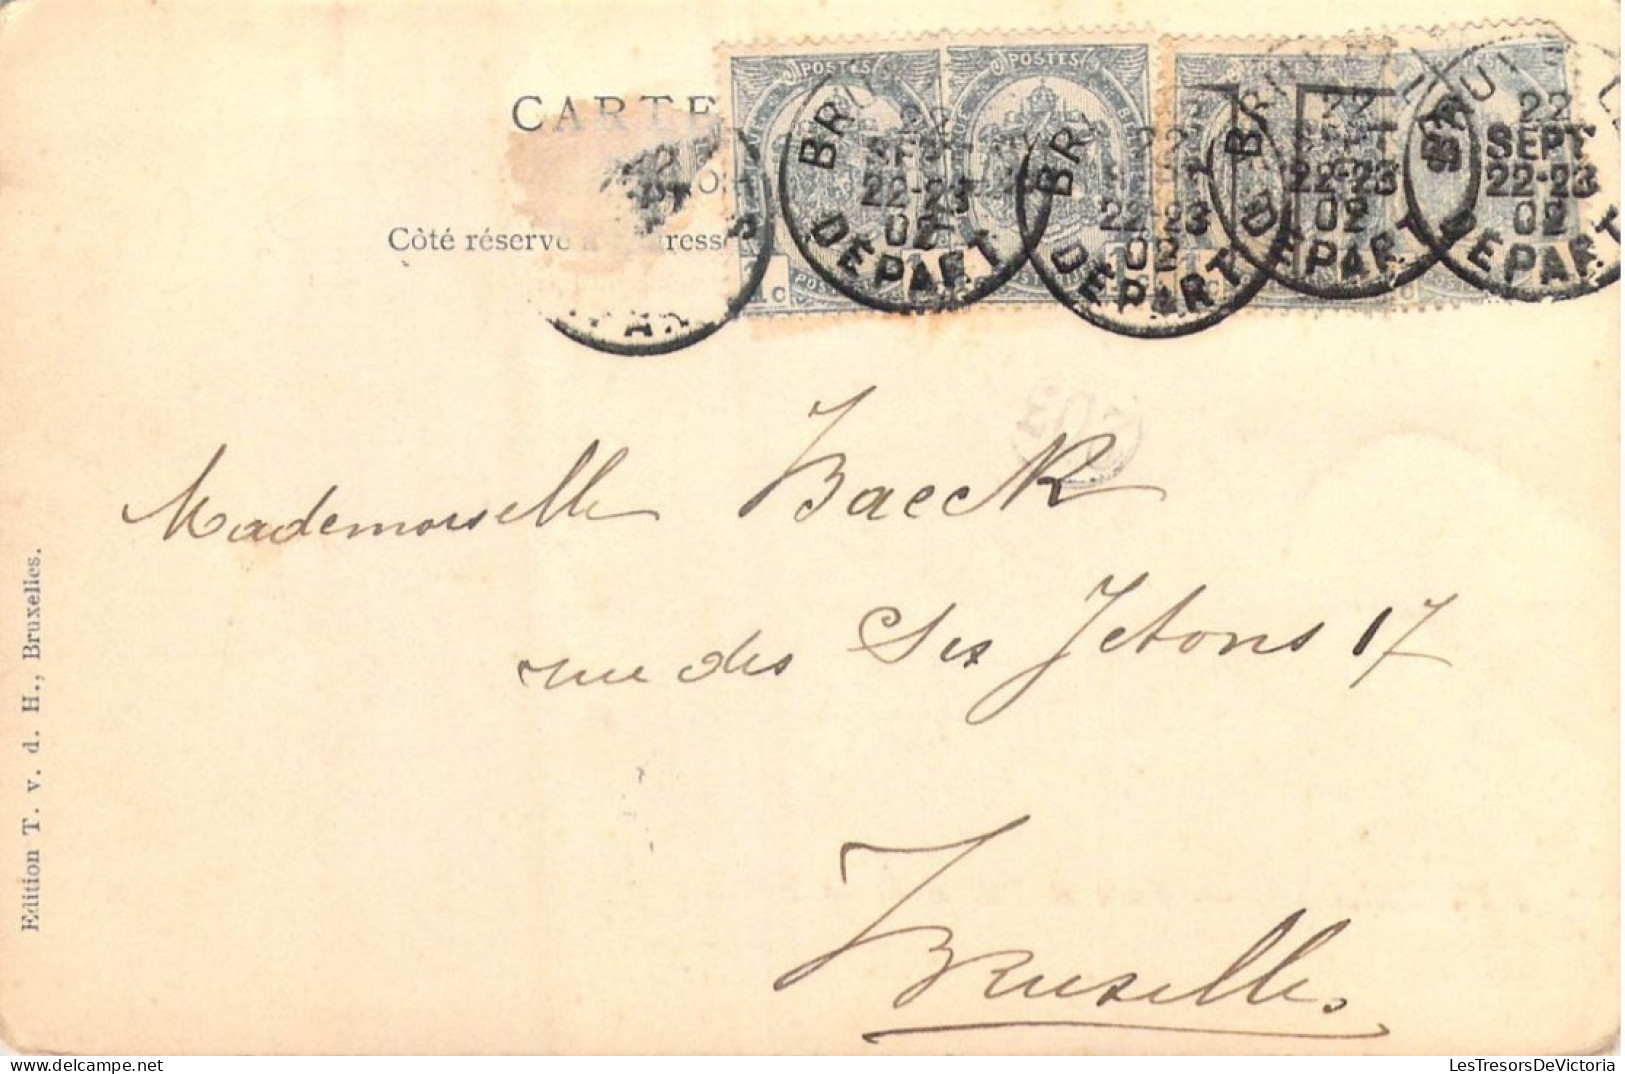 CARTE
Côté réservé
POSTES POSTES
1c
BRU
22
SEPT
22-23
02
DÉPART
BR
22-23
02
DÉPART
BR
22
22-23
02
DÉPART
BRU
22
SEPT
22-23
02
DÉPART
Mademoiselle Baeck
rue des Six Jetons 17
Bruxelles.
Edition T. v. d. H., Bruxelles.
LesTresorsDeVictoria